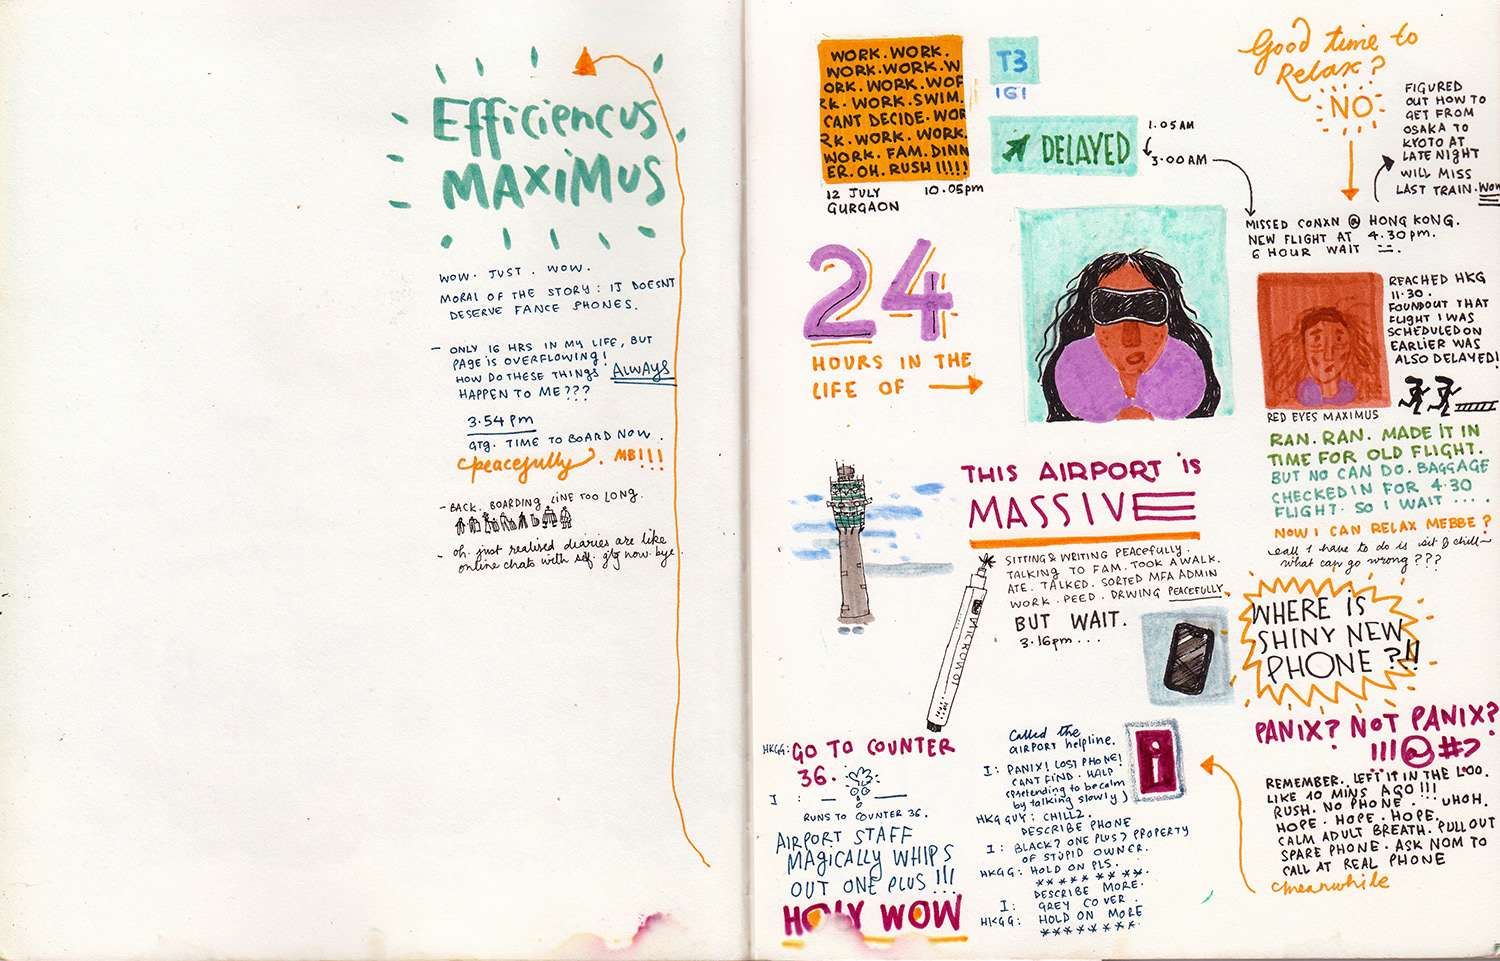 Efficiencus
MAXiMUS
WOW. JUST. WOW.
MORAL OF THE STORY: I DOESNT
DESERVE FANCE PHONES.
- ONLY 16 HRS IN MY LIFE, BUT
PAGE IS OVERFLOWING!
HOW DO THESE THINGS ALWAYS
HAPPEN TO ME???
3.54 pm
GTG. TIME TO BOARD NOW.
(peacefully). MB!!!
- BACK. BOARDING LINE TOO LONG.
- oh. just realised diaries are like
online chats with self. g2g now. bye.
WORK. WORK.
WORK.WORK.W
ORK. WORK. WOR
RK. WORK.SWIM.
CANT DECIDE. WOR
RK. WORK. WORK.
WORK. FAM. DINN
ER. OH. RUSH !!!!!
12 JULY 10.05pm
GURGAON
T3
IGI
DELAYED
1.05 AM
3.00 AM
Good time to
Relax?
NO
FIGURED
OUT HOW TO
GET FROM
OSAKA TO
KYOTO AT
LATE NIGHT
WILL MISS
LAST TRAIN. WOW
MISSED CONXN @ HONG KONG.
NEW FLIGHT AT 4.30 pm.
6 HOUR WAIT
24
HOURS IN THE
LIFE OF
REACHED HKG
11.30.
FOUNDOUT THAT
FLIGHT I WAS
SCHEDULED ON
EARLIER WAS
ALSO DELAYED!
RED EYES MAXIMUS
RAN. RAN. MADE IT IN
TIME FOR OLD FLIGHT.
BUT NO CAN DO. BAGGAGE
CHECKED IN FOR 4.30
FLIGHT. SO I WAIT ....
NOW I CAN RELAX MEBBE?
~all I have to do is sit & chill~
what can go wrong???
THIS AIRPORT iS
MASSIVE
SITTING & WRITING PEACEFULLY.
TALKING TO FAM. TOOK A WALK.
ATE. TALKED. SORTED MFA ADMIN
WORK. PEED. DRWING PEACEFULLY.
BUT WAIT.
3.16pm...
MICRON 01
WHERE iS
SHINY NEW
PHONE?!!
PANIX? NOT PANIX?
!!!@#?
REMEMBER. LEFT IT IN THE LOO.
LIKE 10 MINS AGO!!!
RUSH. NO PHONE. UHOH.
HOPE. HOPE. HOPE.
CALM ADULT BREATH. PULL OUT
SPARE PHONE. ASK NOM TO
CALL AT REAL PHONE
(meanwhile
Called the
AIRPORT helpline.
i
I: PANIX! LOST PHONE!
CANT FIND. HALP
(pretending to be calm
by talking slowly)
HKG GUY: CHILLZ.
DESCRIBE PHONE
I: BLACK? ONE PLUS? PROPERTY
OF STUPID OWNER.
HKGG: HOLD ON PLS.
*******
DESCRIBE MORE.
I: GREY COVER.
HKGG: HOLD ON MORE
********
HKGG: GO TO COUNTER
36.
I :
RUNS TO COUNTER 36.
AIRPORT STAFF
MAGICALLY WHIPS
OUT ONE PLUS!!!
HOLY WOW